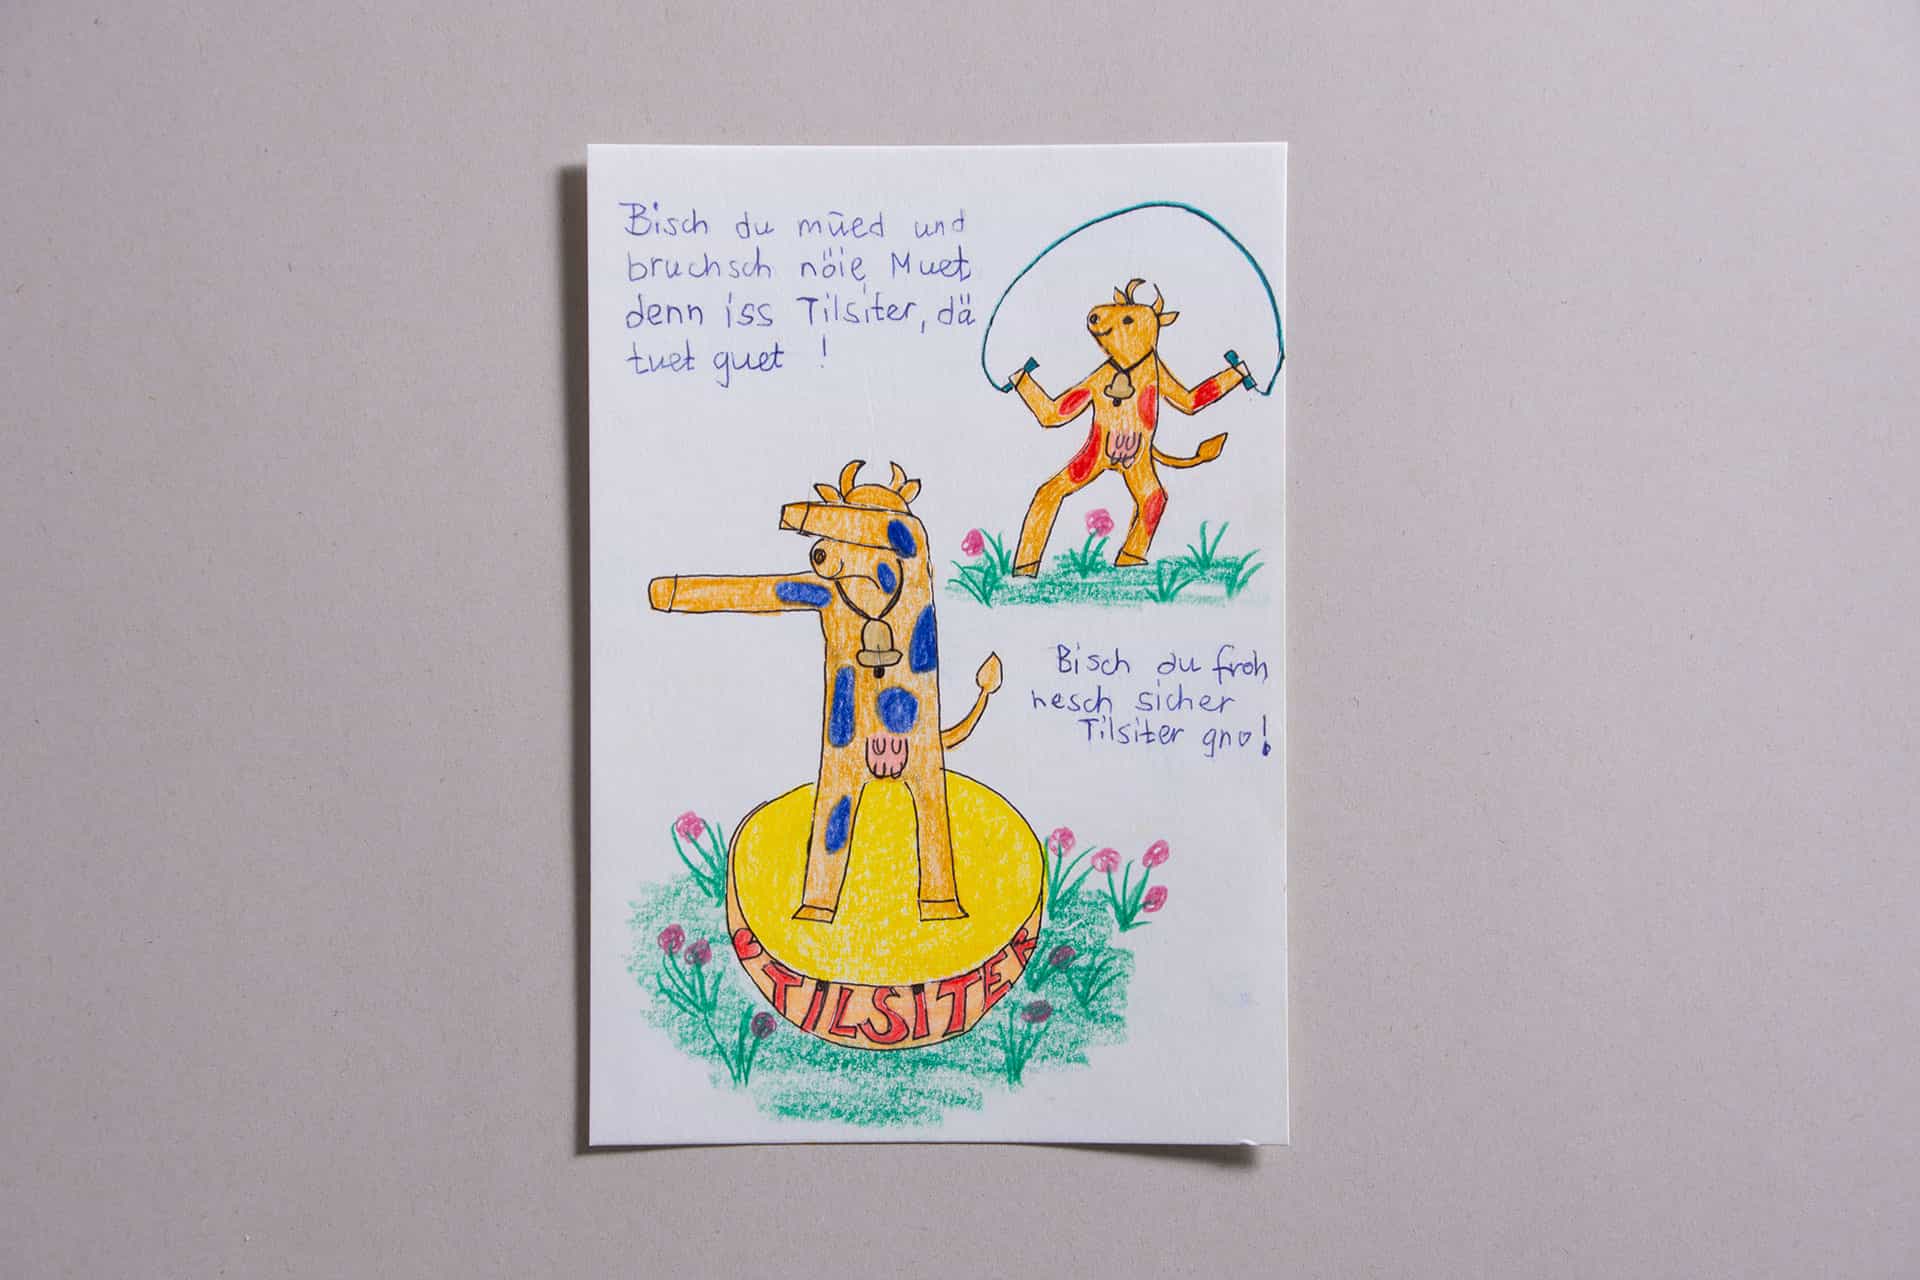 Bisch du müed und
bruchsch nöie Muet
denn iss Tilsiter, dä
tuet guet !
Bisch du froh
hesch sicher
Tilsiter gno!
TILSITER